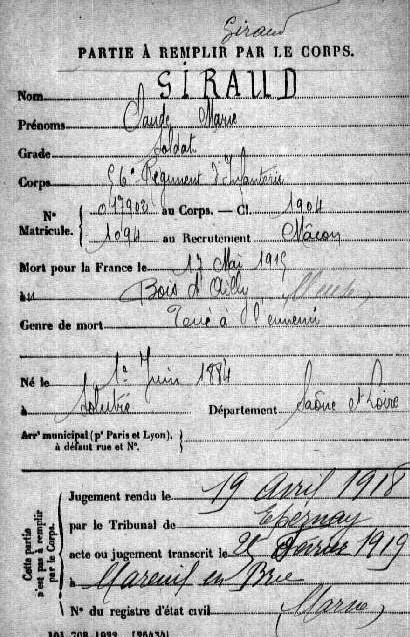 Giraud
PARTIE À REMPLIR PAR LE CORPS.
Nom GIRAUD
Prénoms Claude Marie
Grade Soldat
Corps 56e Régiment d'Infanterie
N° Matricule. 017902 au Corps. — Cl. 1904
1094 au Recrutement Mâcon
Mort pour la France le 17 Mai 1915
à Bois d'Ailly (Meuse)
Genre de mort Tué à l'ennemi
Né le 1er Juin 1884
à Solutré Département Saône et Loire
Arrt municipal (pr Paris et Lyon), à défaut rue et N°.
Cette partie n'est pas à remplir par le Corps.
Jugement rendu le 19 Avril 1918
par le Tribunal de Epernay
acte ou jugement transcrit le Février 1919
à Mareuil en Brie
N° du registre d'état civil (Marne)